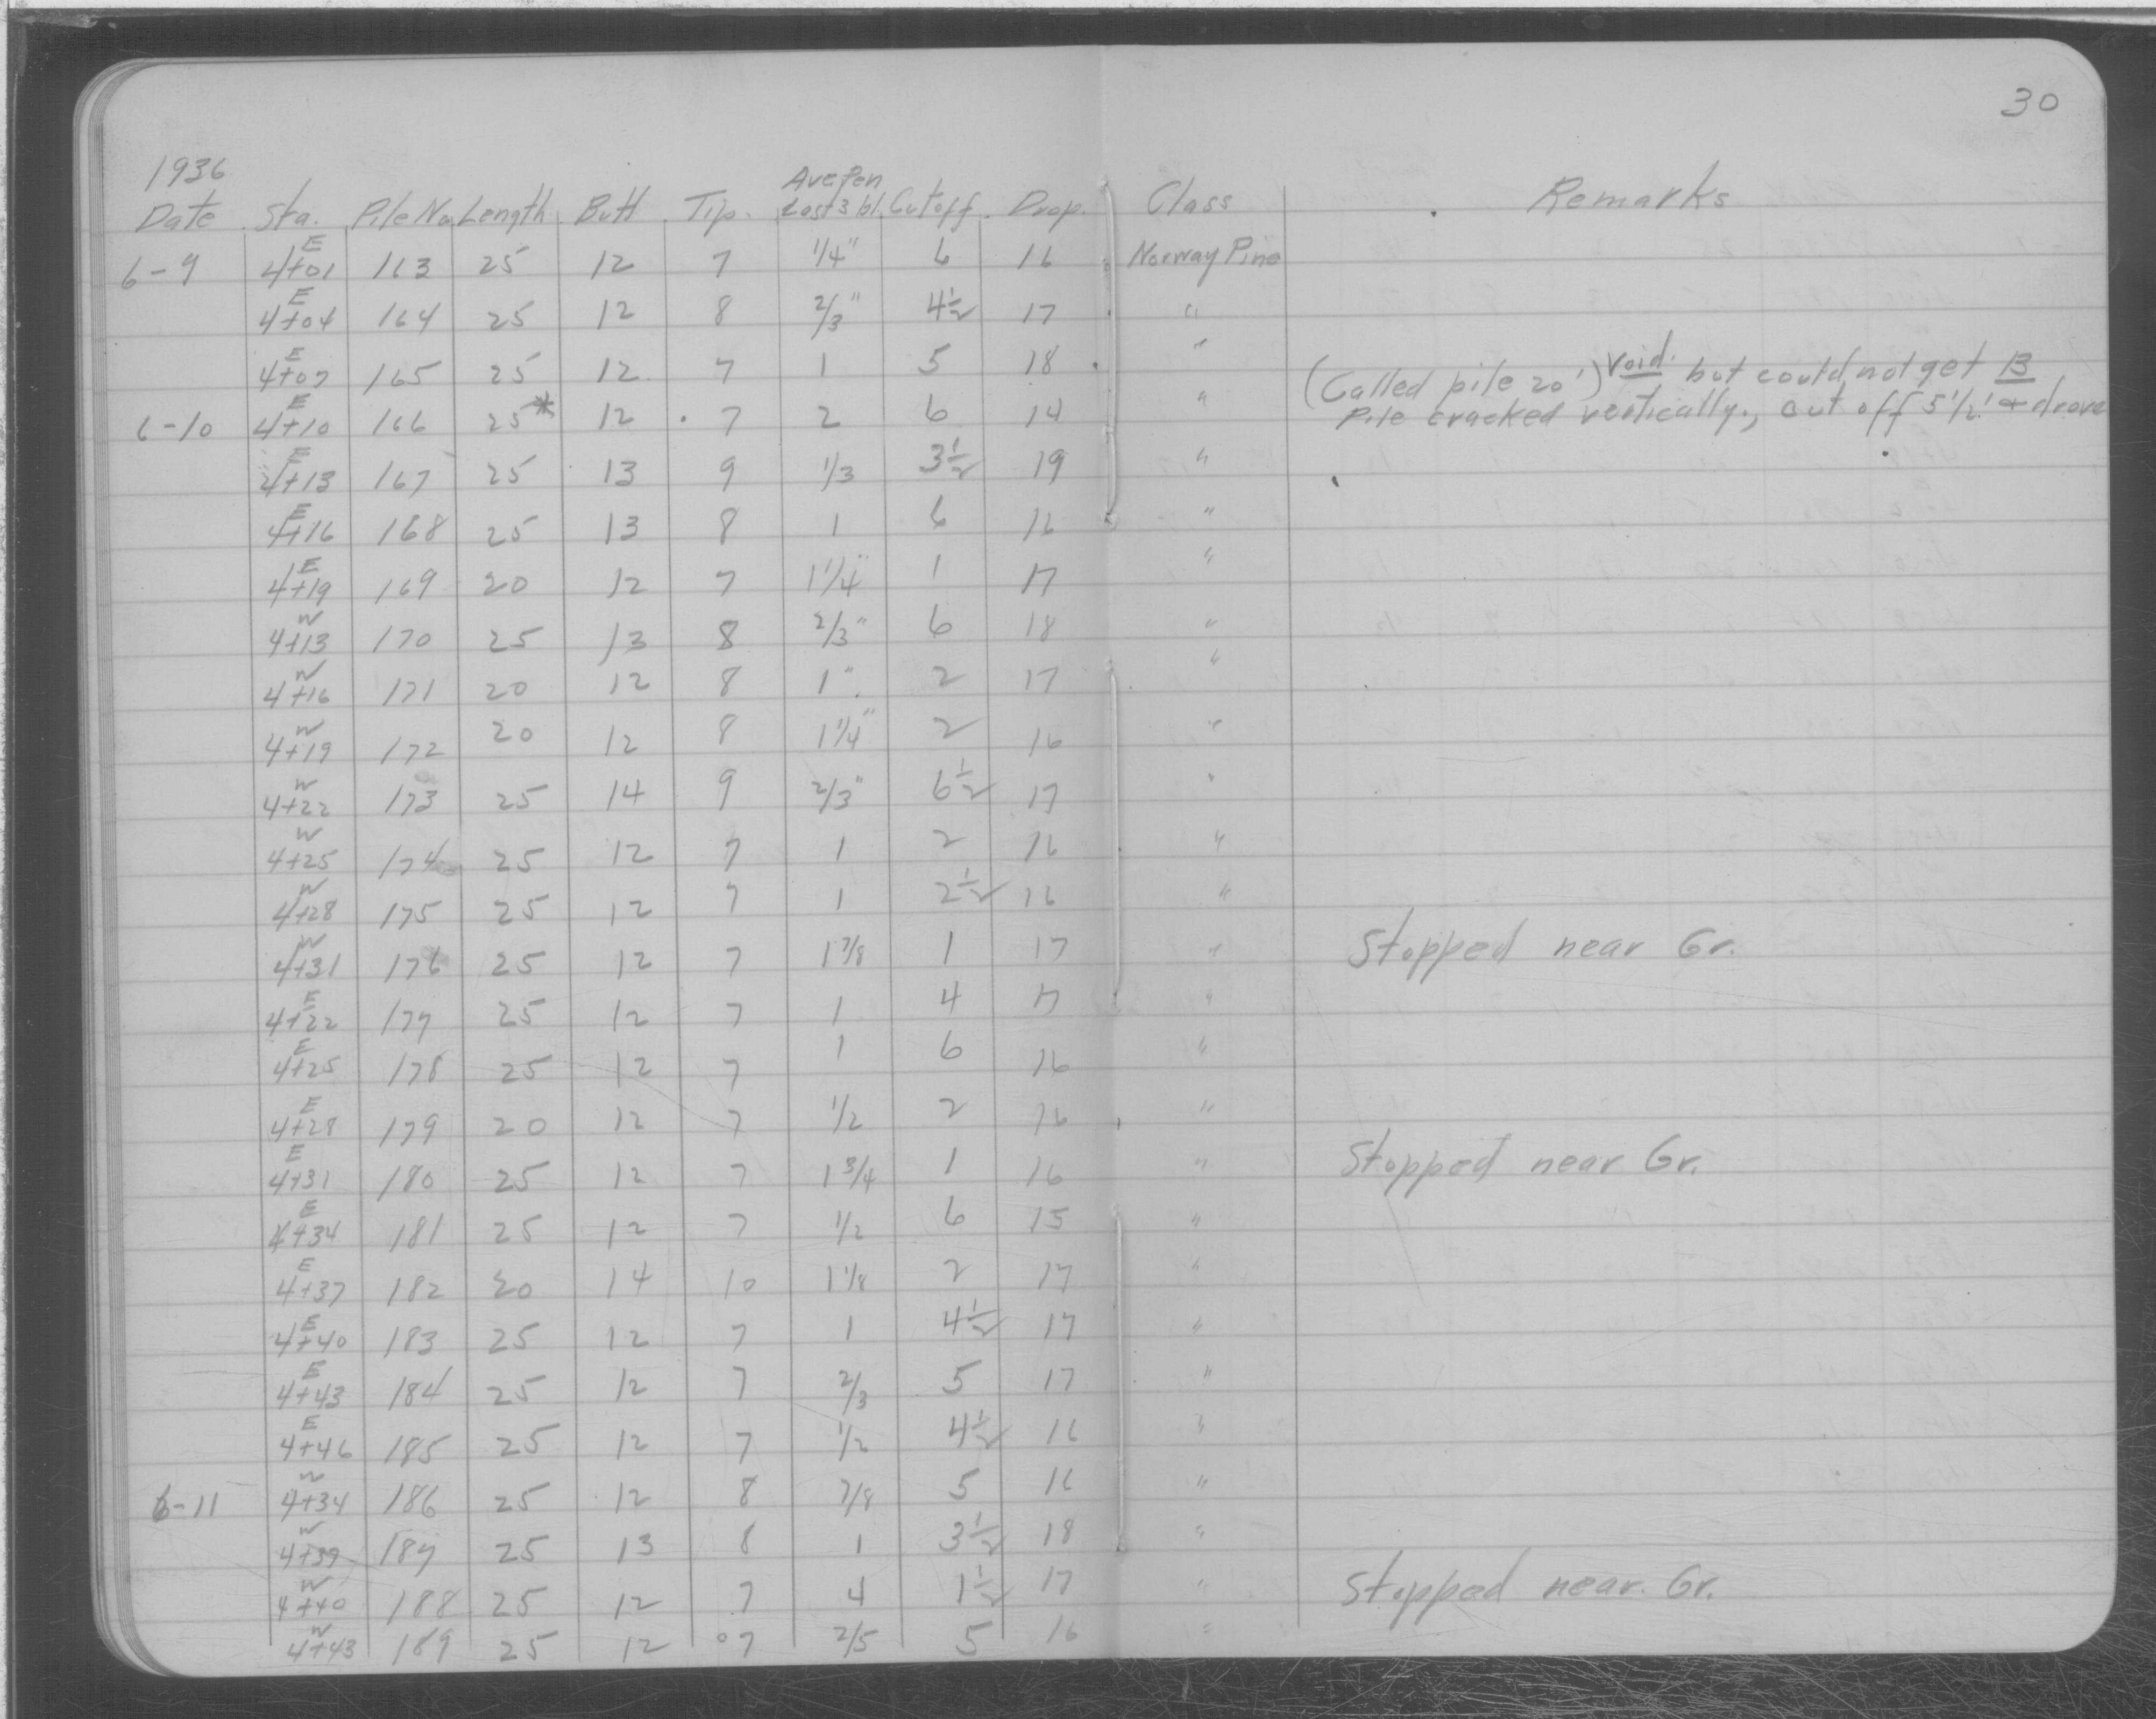 30
1936
Date Sta. Pile No. Length Butt Tip. Ave Pen Last 3 bl. Cutoff Drop. Class Remarks
6-9 4+01 E 163 25 12 7 1/4" 6 16 Norway Pine
4+04 E 164 25 12 8 2/3" 4 1/2 17 "
4+07 E 165 25 12 7 1 5 18 "
(Called pile 20') Void. but could not get 13
6-10 4+10 E 166 25* 12 7 2 6 14 " Pile cracked vertically., cut off 5 1/2' & drove
4+13 E 167 25 13 9 1/3 3 1/2 19 "
4+16 E 168 25 13 8 1 6 16 "
4+19 E 169 20 12 7 1 1/4" 1 17 "
4+13 W 170 25 13 8 2/3" 6 18 "
4+16 W 171 20 12 8 1" 2 17 "
4+19 W 172 20 12 8 1 1/4" 2 16 "
4+22 W 173 25 14 9 2/3" 6 1/2 17 "
4+25 W 174 25 12 7 1 2 16 "
4+28 W 175 25 12 7 1 2 1/2 16 "
4+31 W 176 25 12 7 1 7/8 1 17 " Stopped near Gr.
4+22 E 177 25 12 7 1 4 17 "
4+25 E 178 25 12 7 1 6 16 "
4+28 E 179 20 12 7 1/2 2 16 "
4+31 E 180 25 12 7 1 3/4 1 16 " Stopped near Gr.
4+34 E 181 25 12 7 1/2 6 15 "
4+37 E 182 20 14 10 1 1/8 2 17 "
4+40 E 183 25 12 7 1 4 1/2 17 "
4+43 E 184 25 12 7 2/3 5 17 "
4+46 E 185 25 12 7 1/2 4 1/2 16 "
6-11 4+34 W 186 25 12 8 7/8 5 16 "
4+39 W 187 25 13 8 1 3 1/2 18 "
4+40 W 188 25 12 7 4 1 1/2 17 " Stopped near Gr.
4+43 W 189 25 12 07 2/5 5 16 "